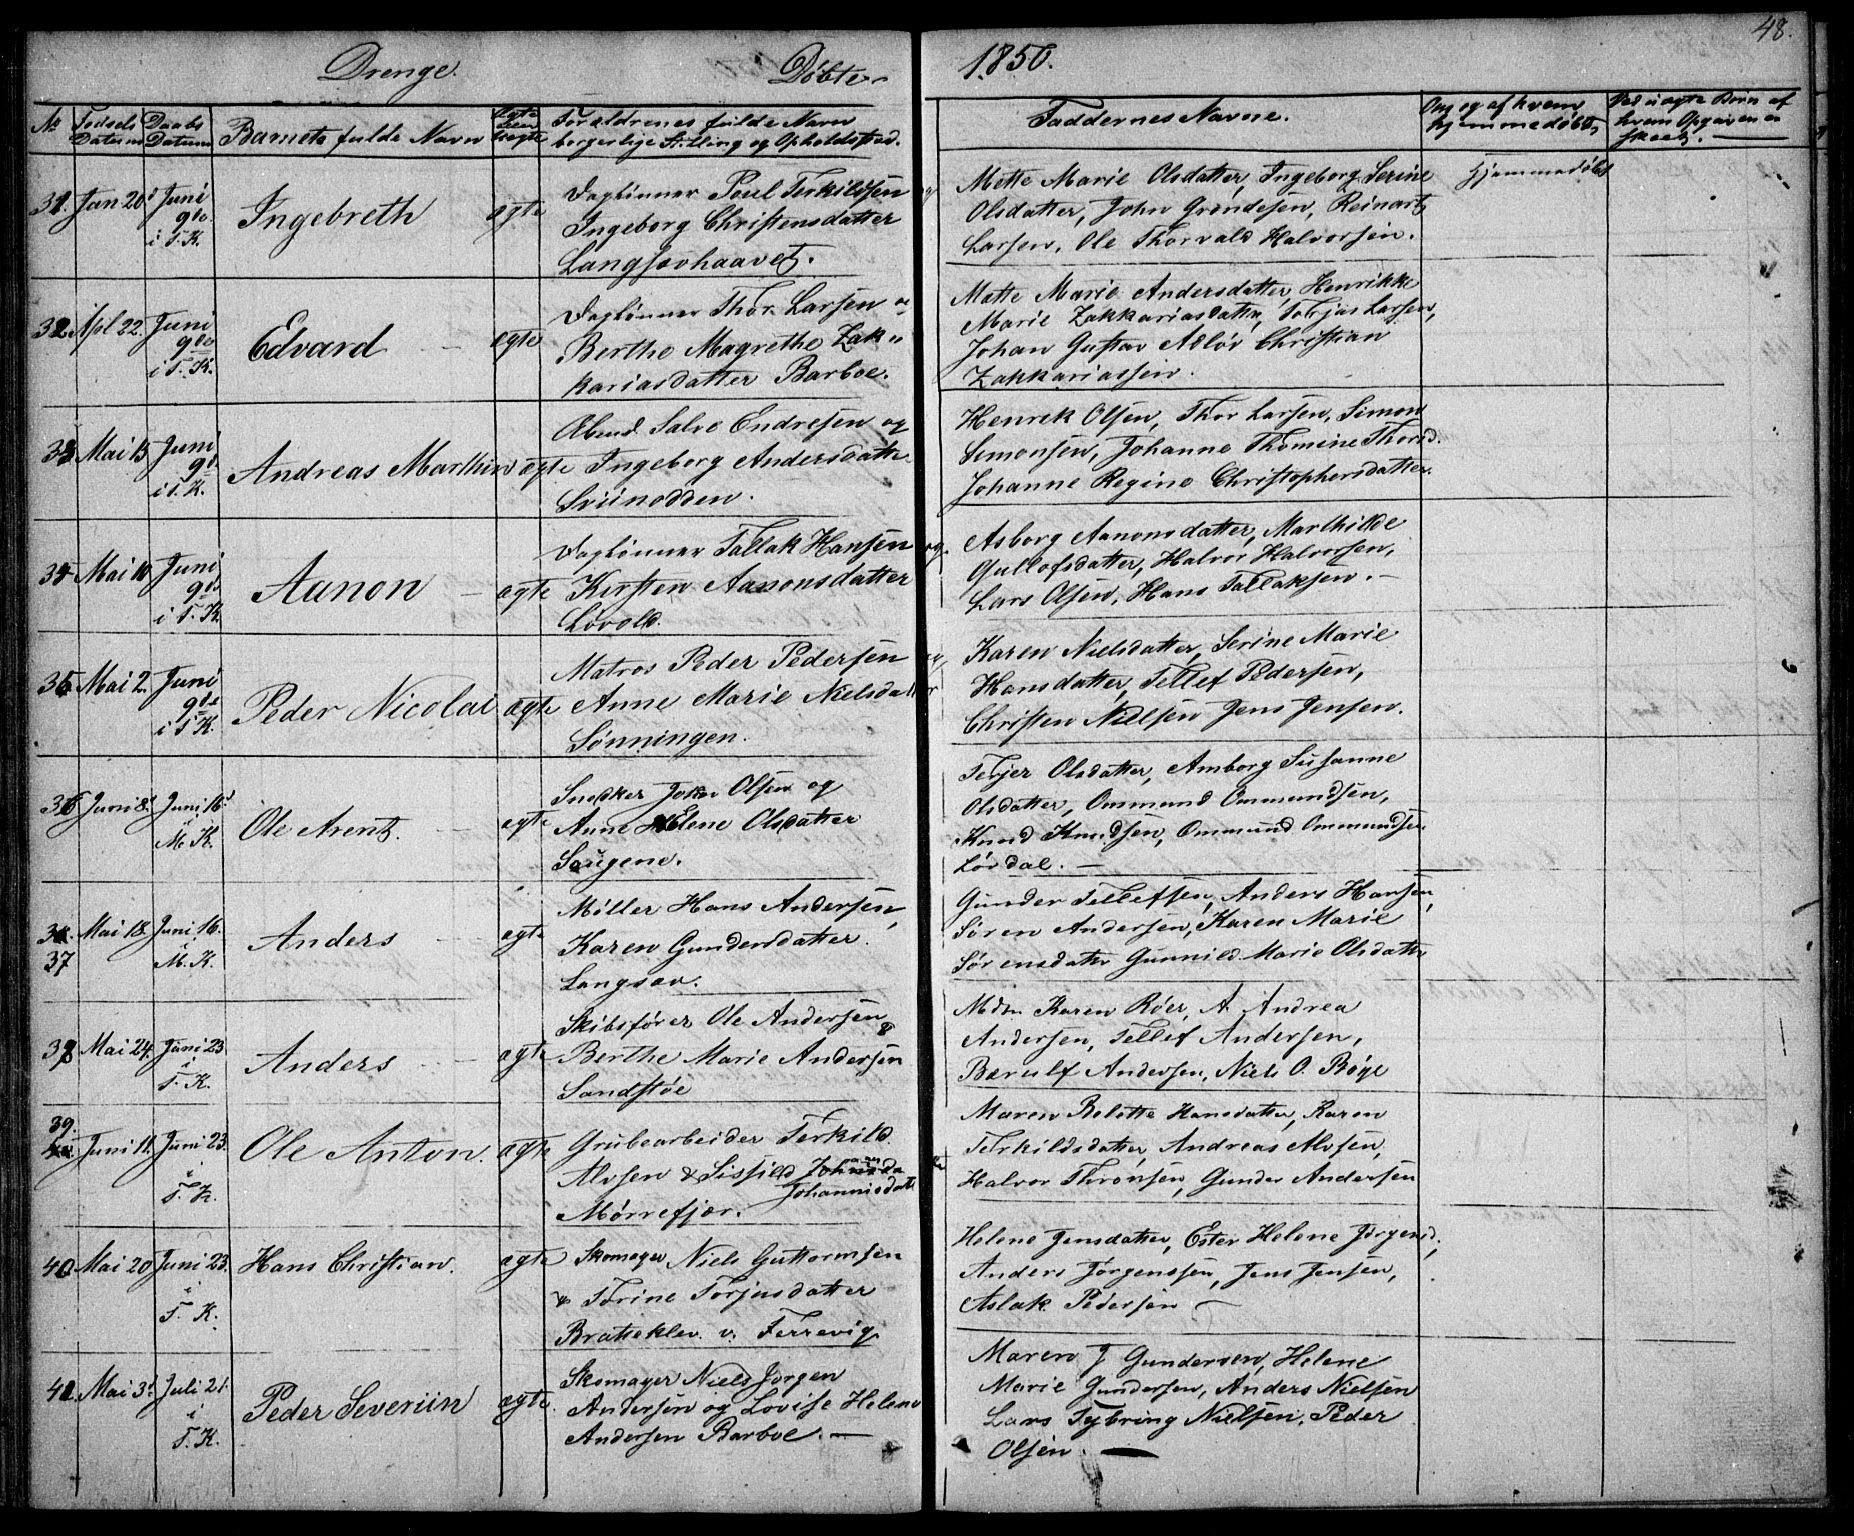 48.
Drenge. Døbte 1850.
No Fødsels Datum Daabs Datum Barnets fulde Navn Ægte eller Uægte Forældrenes fulde Navn borgerlige Stilling og Opholdssted. Faddernes Navne. Om og af hvem hjemmedøbt Ved uægte Børn af hvem Opgaven er skeet.
31. Jan 20 Juni 9de i T. K. Ingebreth ægte Daglønner Poul Terkildsen og
Ingeborg Christensdatter
Langsævhaavet.
Mette Marie Olsdatter, Ingeborg Serine
Olsdatter, John Grundesen, Reinart
Larsen, Ole Thorvald Halvorsen.
Hjemmedøbt
32. Apl 22. Juni 9de i T. K. Edvard ægte Daglønner Thor Larsen og
Berthe Magrethe Zak„
kariasdatter Barboe.
Mette Marie Andersdatter Henrikke
Marie Zakkariasdatter, Torjus Larsen,
Johan Gustav Adlør Christian
Zakkariassen.
33 Mai 15 Juni 9d. i T. K. Andreas Marthin ægte Salve Endresen og
Ingeborg Andersdatter
Sviinodden.
Henrik Olsen, Thor Larsen, Simon
Simonsen, Johanne Thomine Thorsd.
Johanne Regine Christophersdatter.
34 Mai 10 Juni 9de i T. K. Aanon ægte Daglønner Tallak Hansen og
Kirsten Aanonsdatter
Lovold.
Asborg Aanonsdatter, Marthilde
Gullofsdatter, Halvor Halvorsen,
Lars Olsen, Hans Tallaksen.
35 Mai 2. Juni 9de i T. K. Peder Nicolai ægte Matros Peder Pedersen og
Anne Marie Nielsdatter
Sønningen.
Karen Nielsdatter, Serine Marie
Hansdatter, Tellef Pedersen,
Christen Nielsen Jens Jensen.
36 Juni 8. Juni 16 i M. K. Ole Arent. ægte Snedker John Olsen og
Anne Helene Olsdatter
Saugene.
Terjer Olsdatter, Amborg Susanne
Olsdatter, Ommund Ommundsen,
Knud Knudsen, Ommund Ommundsen
Lørdal.
37 Mai 18. Juni 16. i M. K. Anders ægte Møller Hans Andersen,
Karen Gundersdatter.
Langsæv.
Gunder Tellefsen, Anders Hansen,
Søren Andersen, Karen Marie
Sørensdatter Gunnild Marie Olsdatter
38 Mai 24. Juni 23 i T. K. Anders ægte Skibsfører Ole Andersen &
Berthe Marie Andersen
Sandstøe
Mdm Karen Røer, A. Andrea
Andersen, Tellef Andersen,
Bærulf Andersen, Niels O. Bøge
39. Juni 11. Juni 23. i T. K. Ole Anton. ægte Grubearbeider Terkild
Alvsen & Sissild Johannisdatt
Mørrefjær.
Maren Belotte Hansdatter, Karen
Terkildsdatter, Andreas Alvsen,
Halvor Thronsen, Gunder Andersen
40 Mai 20 Juni 23. i T. K. Hans Christian. ægte Skomager Niels Guttormsen
& Torine Torjusdatter
Bratteklev v. Terrevig
Helene Jensdatter, Ester Helene Jørgensd.,
Anders Jørgenssen, Jens Jensen,
Aslak Pedersen
41. Mai 3. Juli 21. i T. K. Peder Severiin ægte. Skomager Niels Jørgen
Andersen og Lovise Helene
Andersen Barboe.
Maren J Gundersen, Helene
Marie Gundersen, Anders Nielsen
Lars Tybring Nielsen, Peder
Olsen.